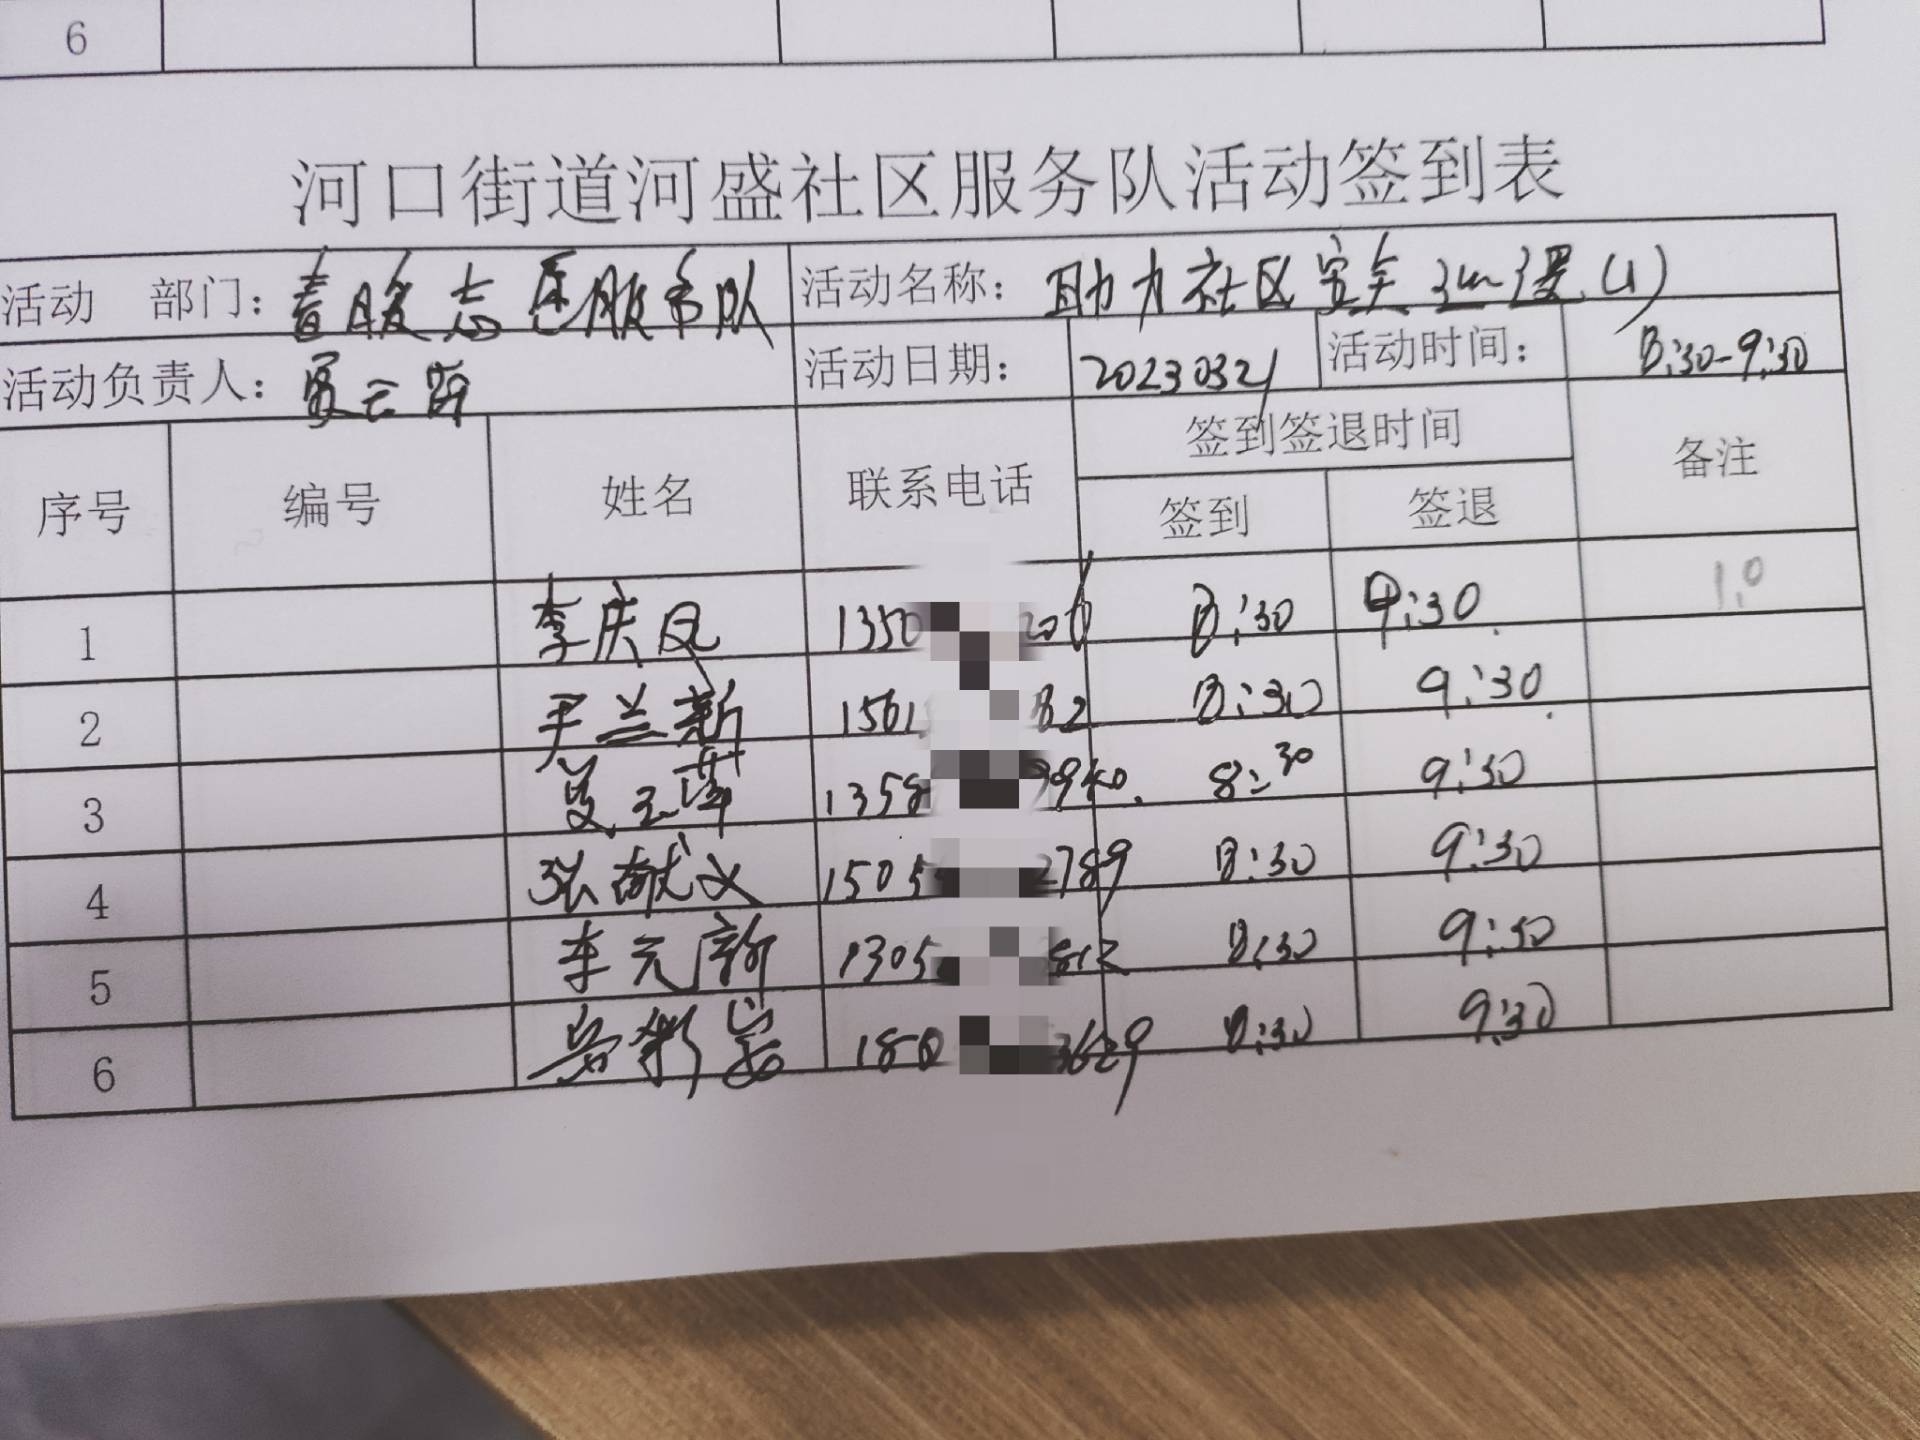 6
河口街道河盛社区服务队活动签到表
活动 部门： 志愿服务队 活动名称： 助力社区安全建设(1)
活动负责人： 活动日期： 20230321 活动时间： 8:30-9:30
序号 编号 姓名 联系电话 签到签退时间 备注
签到 签退
1 李庆凤 1350 206 8:30 9:30 1.0
2 尹兰新 1561 82 8:30 9:30
3 1358 9940. 8:30 9:30
4 张献义 1505 2789 8:30 9:30
5 车元新 1305 3812 8:30 9:30
6 180 3629 8:30 9:30